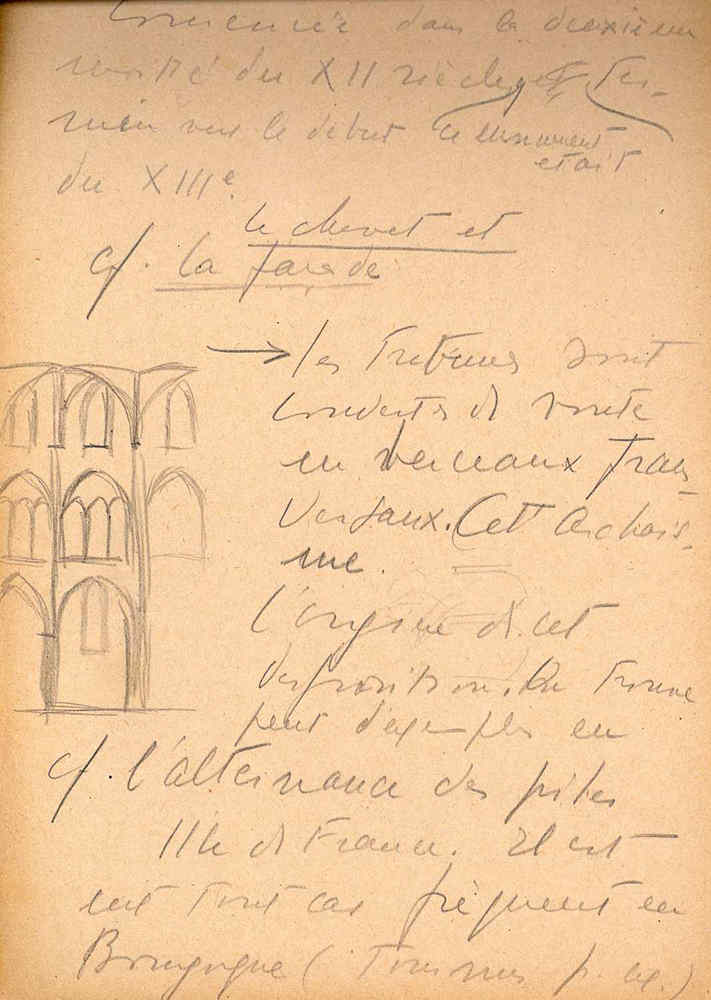 commencée dans la deuxième
moitié du XII siècle, et ter-
miné vers le début ce monument
était
du XIIIe.
le chevet et
cf. la façade
→ les Tribunes sont
couvertes de voute
en berceaux Trans
versaux. (Cet archais-
me.
l'origine de cet
disposition. On trouve
peut d'exemples en
cf. l'alternance des piles
Ile de France. Il est
en tout cas fréquent en
Bourgogne (Tournus p. ex.)